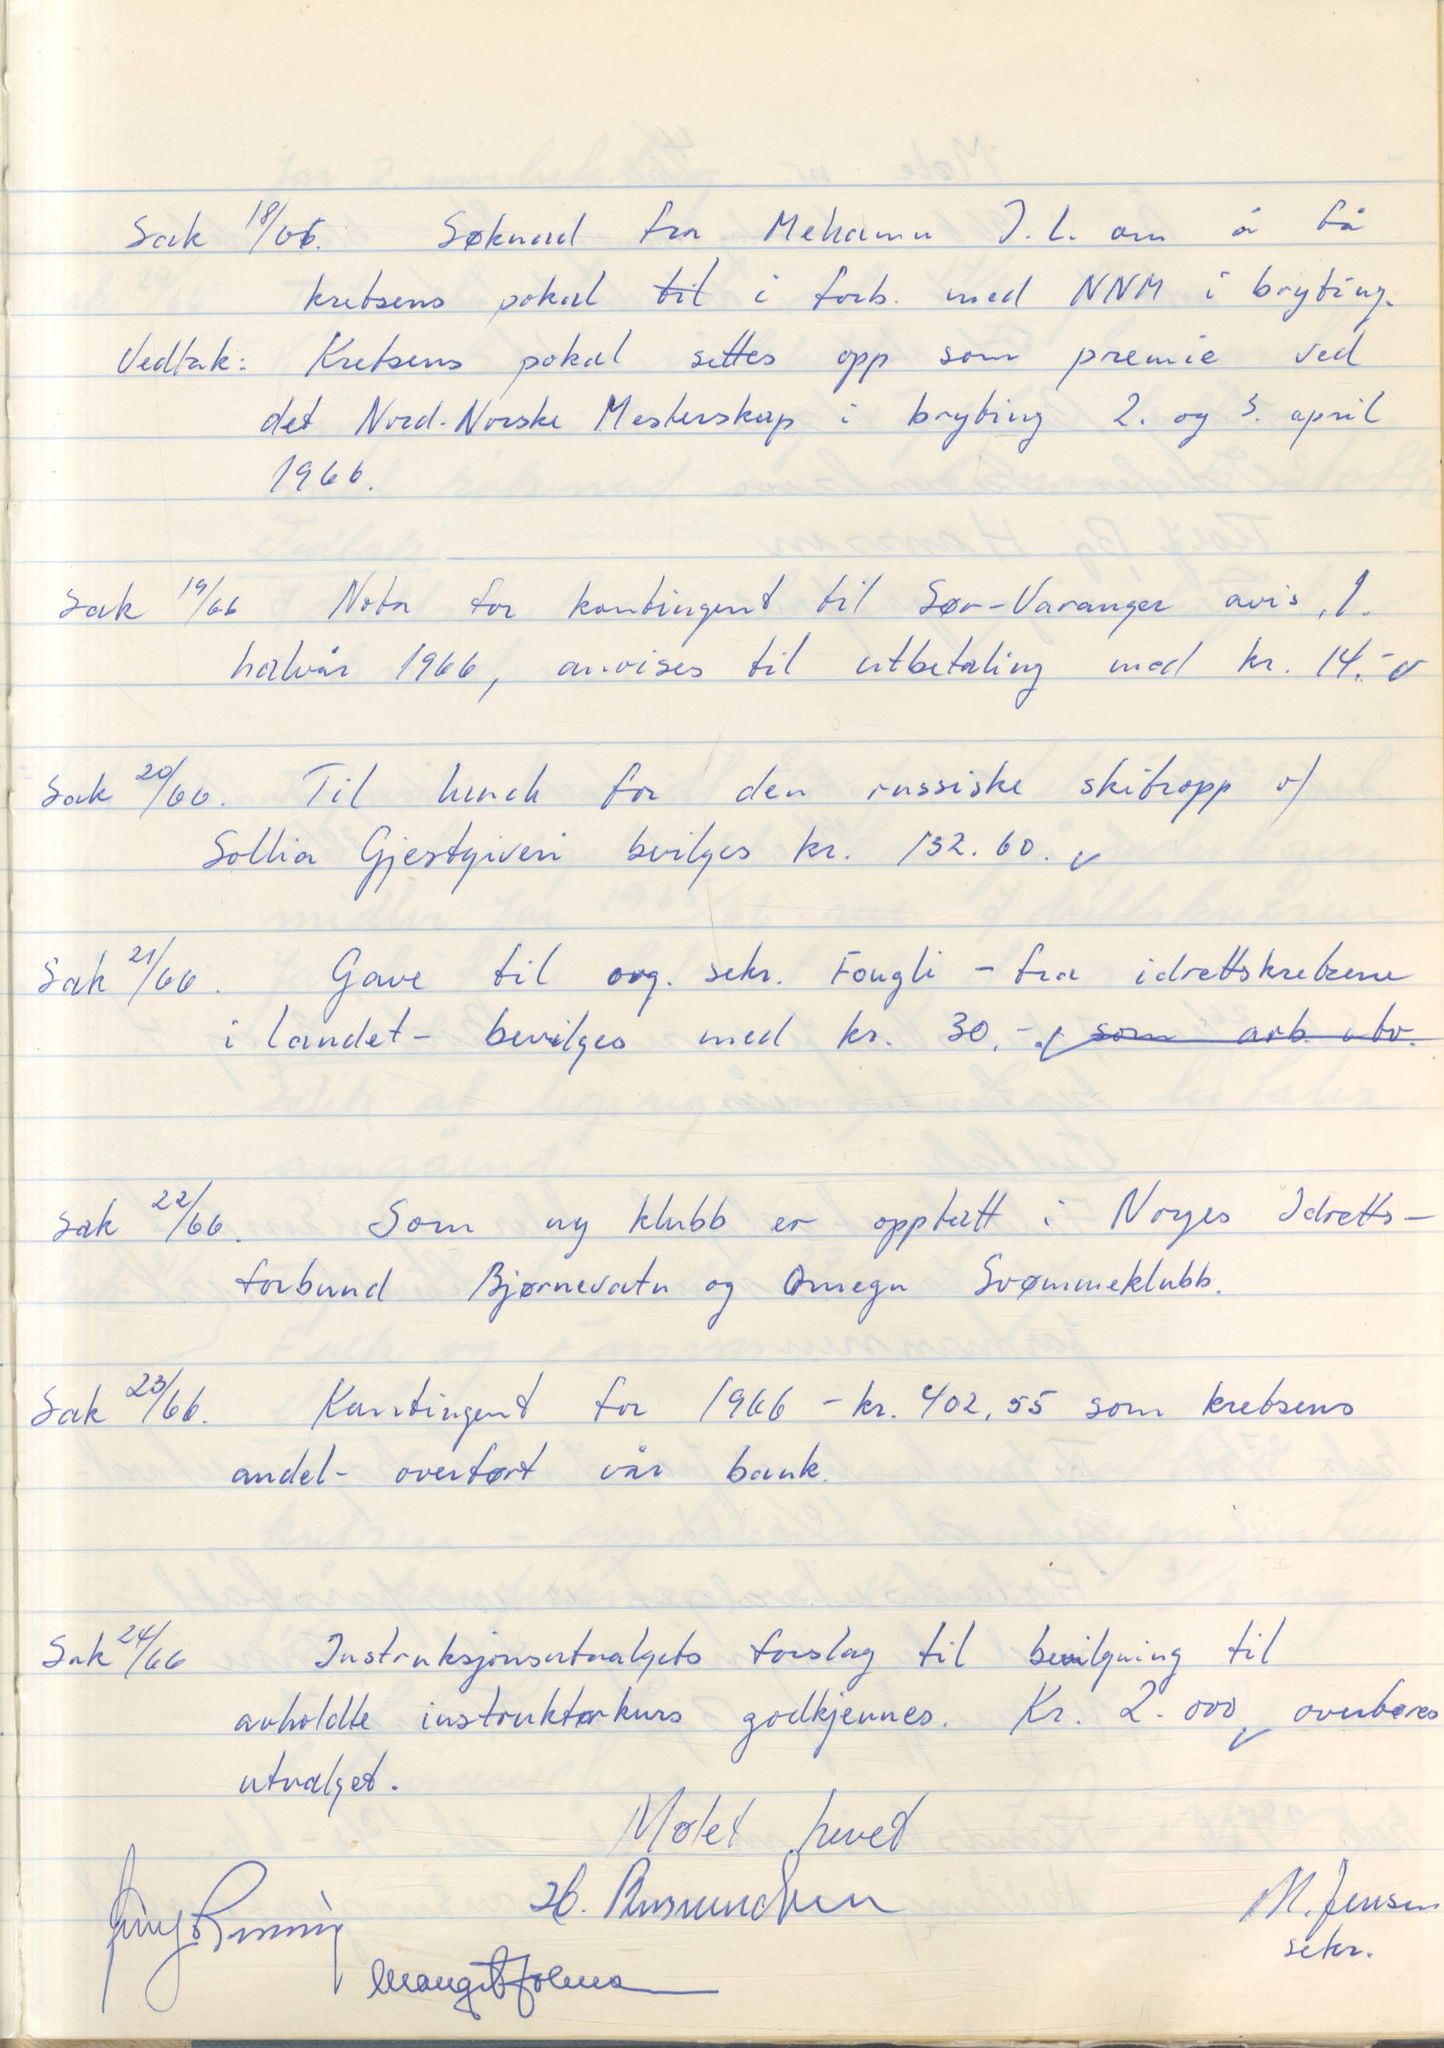 Sak 18/66. Søknad fra Mehamn I.L. om å få
kretsens pokal til i forb. med NNM i bryting.
Vedtak: Kretsens pokal settes opp som premie ved
det Nord-Norske Mesterskap i bryting 2. og 3. april
1966.
Sak 19/66 Nota for kontingent til Sør-Varanger avis, 1.
halvår 1966, anvises til utbetaling med kr. 14.-
Sak 20/66. Til lunch for den russiske skitropp v/
Sollia Gjestgiveri bevilges kr. 152.60.
Sak 21/66. Gave til org. sekr. Fougli - fra idrettskretsene
i landet - bevilges med kr. 30.- som arb. utv.
Sak 22/66. Som ny klubb er opptatt i Norges Idretts-
forbund Bjørnevatn og Omegn Svømmeklubb.
Sak 23/66. Kontingent for 1966 - kr. 402,55 som kretsens
andel - overført vår bank.
Sak 24/66 Instruksjonsutvalgets forslag til bevilgning til
avholdte instruktørkurs godkjennes. Kr. 2.000 overføres
utvalget.
Møtet hevet
M. Jensen
sekr.